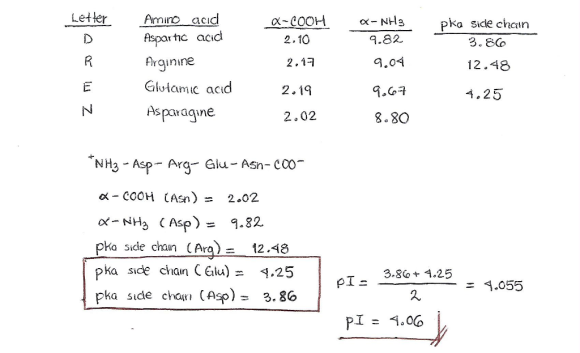 Letter Amino acid α-COOH α-NH3 pka side chain
D Aspartic acid 2.10 9.82 3.86
R Arginine 2.17 9.04 12.48
E Glutamic acid 2.19 9.67 4.25
N Asparagine 2.02 8.80
+NH3 - Asp - Arg - Glu - Asn - COO-
α-COOH (Asn) = 2.02
α-NH3 (Asp) = 9.82
pka side chain (Arg) = 12.48
pka side chain (Glu) = 4.25
pka side chain (Asp) = 3.86
pI = 3.86 + 4.25 / 2 = 4.055
pI = 4.06